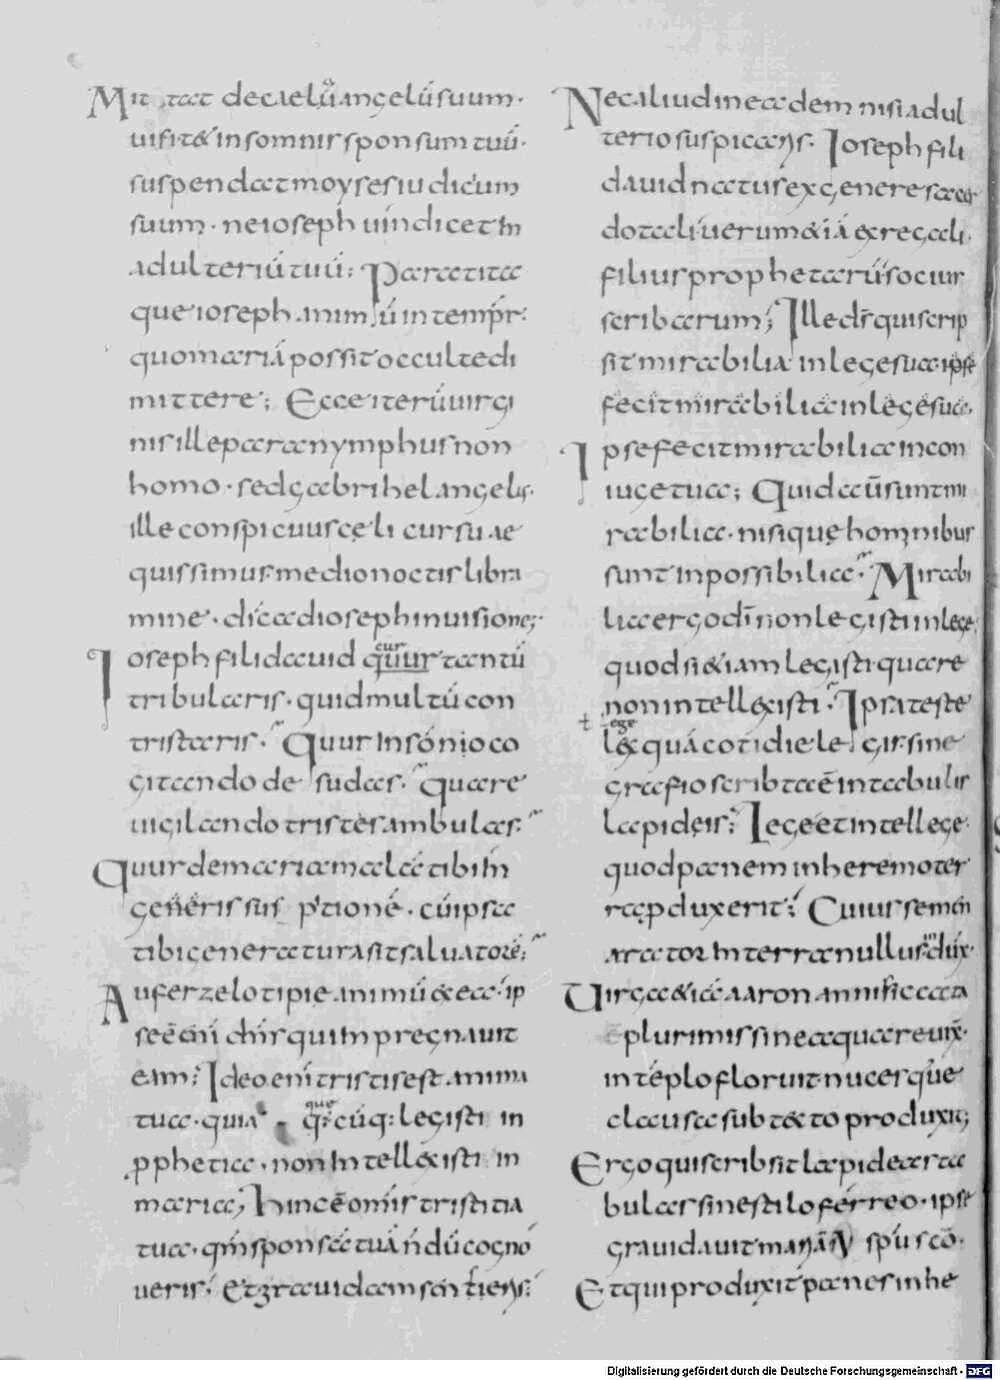 Mit tat de caelū angelū suum·
uisit& insomnis sponsum tuū·
suspendat moyses iudicium
suum· ne ioseph uindicet in
adulteriū tuū; Paratita
que ioseph animū intempr̄:
quo mariā possit occulte di
mittere; Ecce iterū uirgi
nis ille paranymphus non
homo· sed gabrihel angelus·
ille conspicuus cęli cursu ae
quissimus· medio noctis libra
mine· dicad ioseph in uisione;
Ioseph fili dauid quur tantū
cur
tribularis· quid multū con
tristaris· Quur insōnio co
gitando desudas· Quare
uigilando tristes ambulas·
Quur de maria mala tibi in
generis suspitionē· cū ipsa
tibi generatura sit saluatorē;
Aufer zelotipię animū ex ea· ip
se ē enī chr̄s qui inpregnauit
eam; Ideo enī tristis est anima
tua· quia q: cūq: legisti in
que
pphetia· non intell&isti in
maria; Hinc ē omīs tristitia
tua· qm̄ sponsā tuā n̄dū cogno
ueris; Et grauidam sentiens;
Nec aliud in eadem nisi adul
terio suspicaris· Ioseph fili
dauid natus ex genere sacer
dotali· uerum &iā ex regali·
filius prophetarū· socius
scribarum; Ille dr̄ qui scrip
sit mirabilia in lege sua· ipse
fecit mirabilia in lege sua·
Ipse fecit mirabilia in con
iuge tua; Quid aū sunt mi
rabilia· nisi quę hominibus
sunt inpossibilia· Mirabi
lia ergo dī non legisti in lege
quod si &iam legisti quare
non intellexisti· Ipsa teste
lege
lex quā cotidie legis· sine
grafio scribta ē in tabulis
lapideis; Lege et intellege·
quod panem in heremo ter
ra pduxerit; Cuius semen
arator in terra nullus indux·
Uirga &iā aaron ammificata
plurimis sine aqua reuix·
in tēplo floruit· nucesque
clausa sub t&to produxit;
Ergo qui scribsit lapidea ta
bulas sine stilo férreo· ipse
grauidauit mariā spū scō·
Et qui produxit panes in he
Digitalisierung gefördert durch die Deutsche Forschungsgemeinschaft - DFG